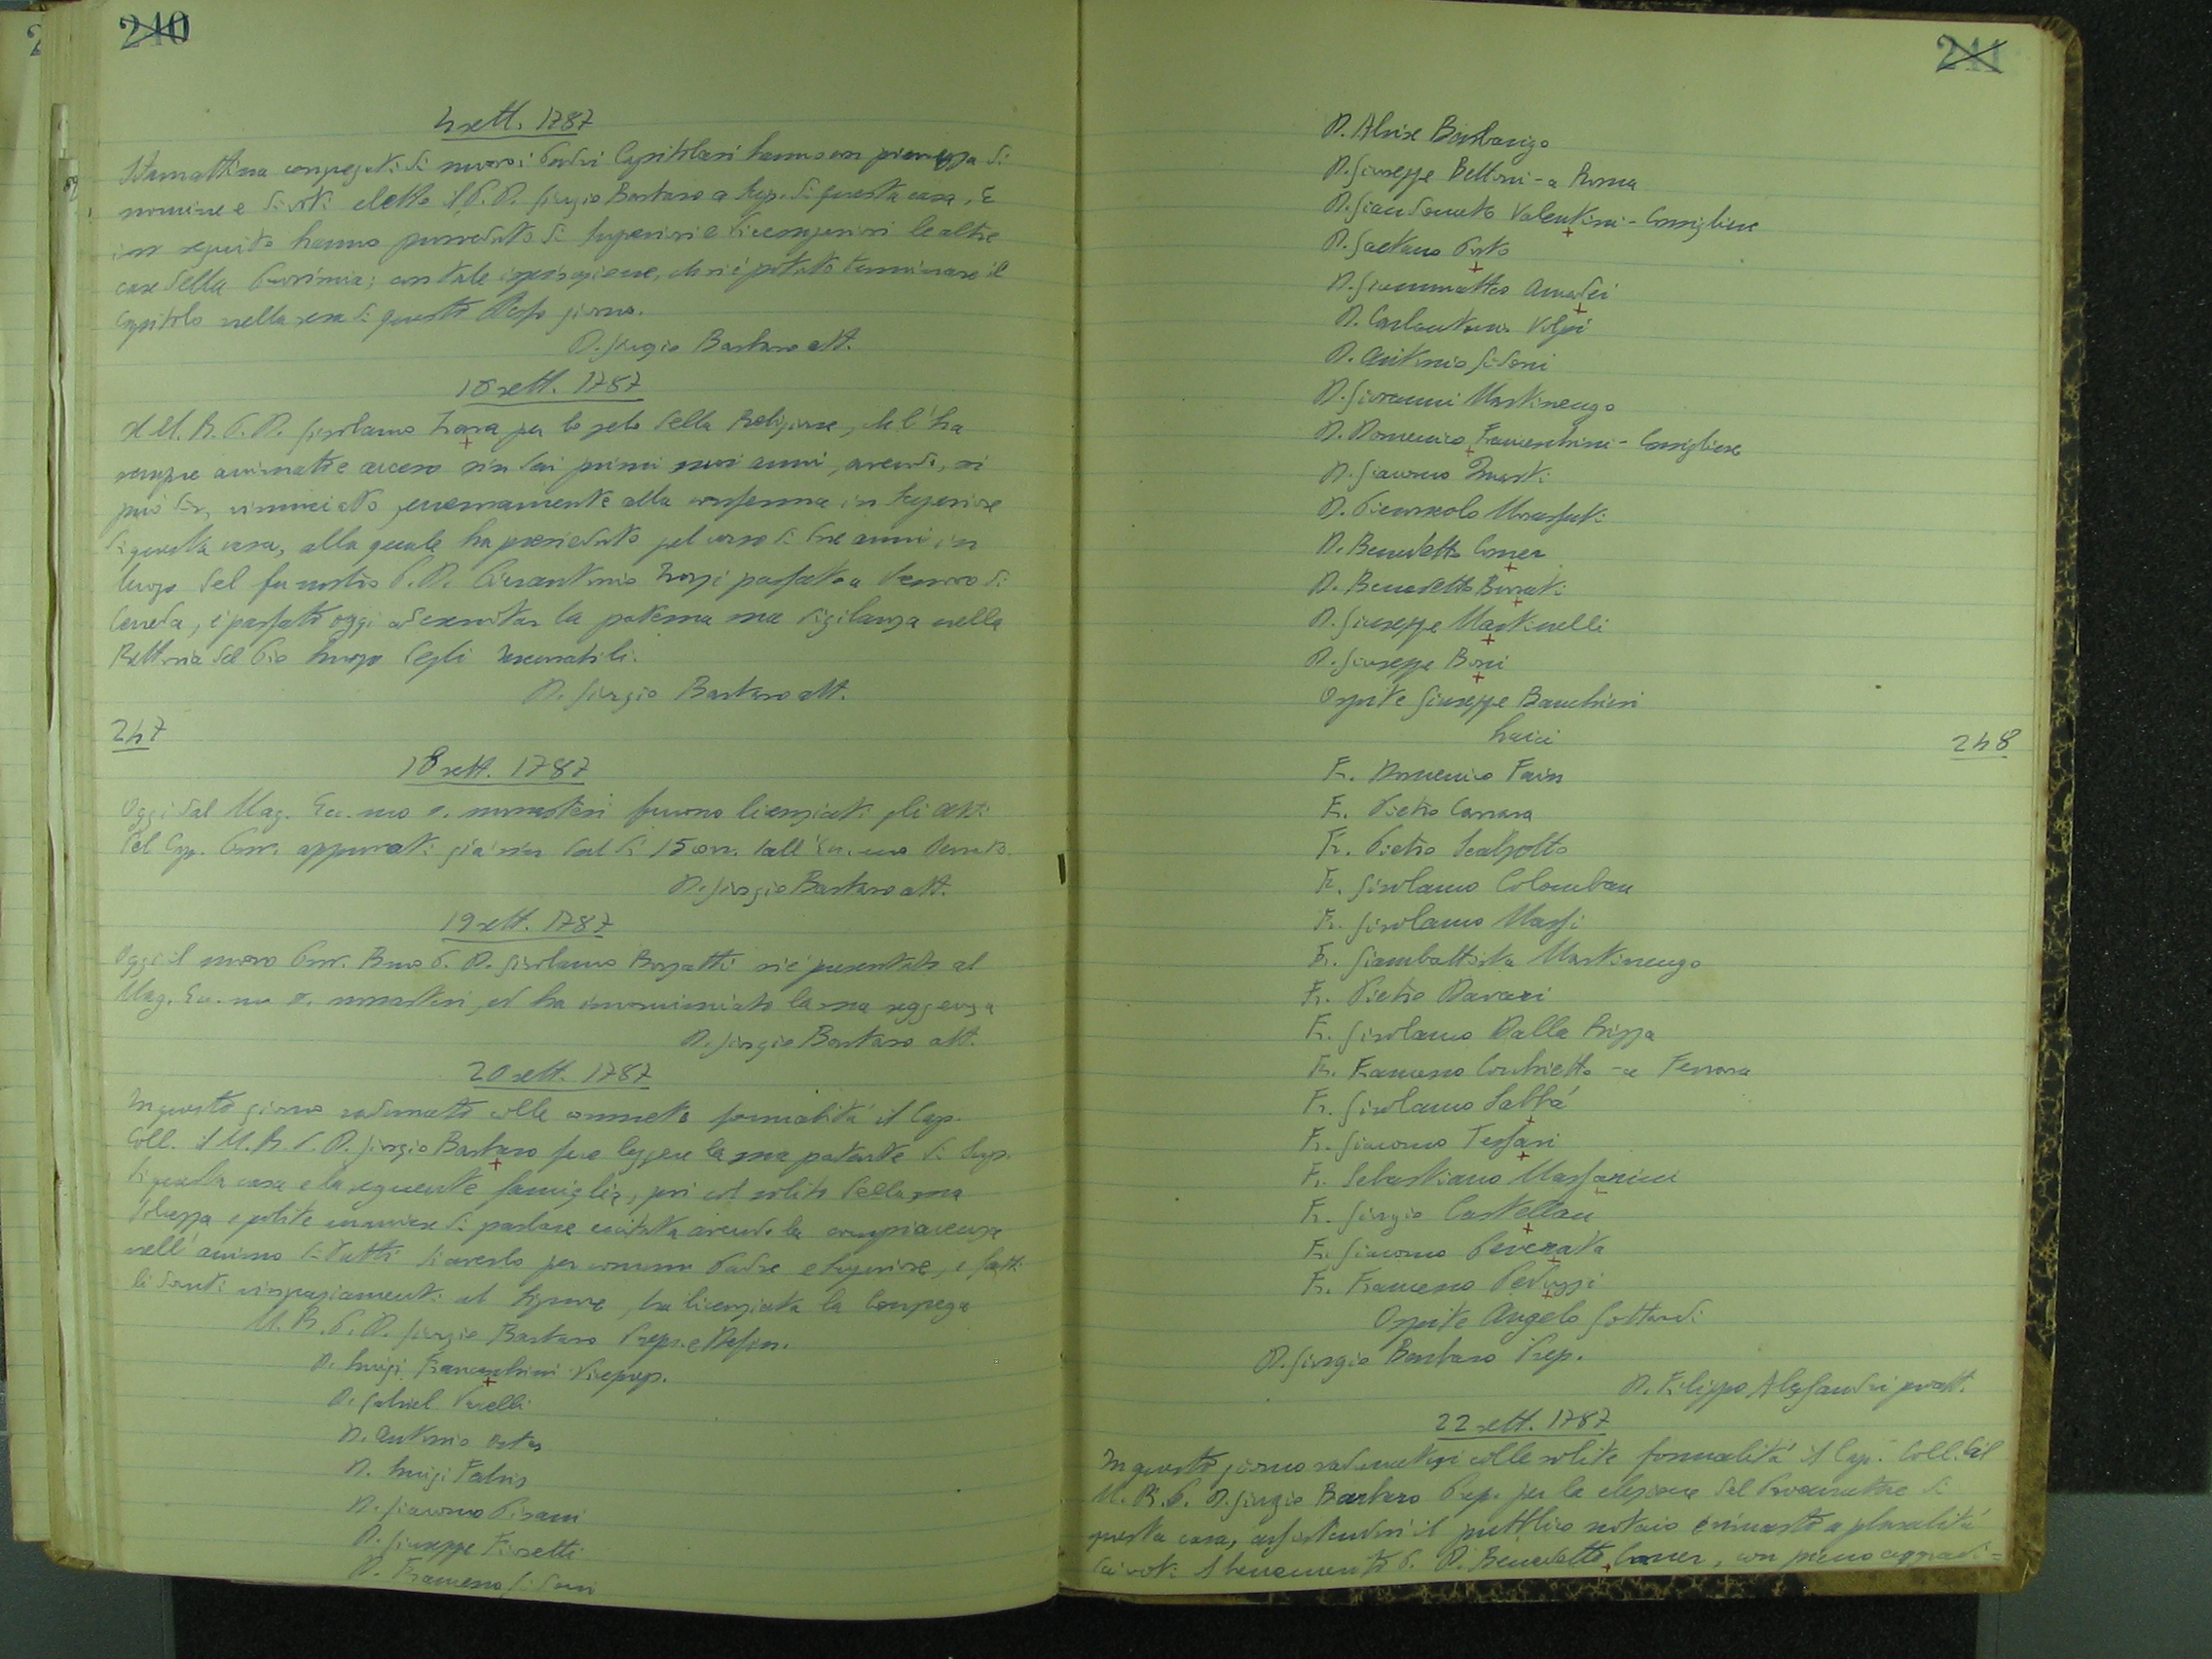 240
4 sett. 1787
Stamattina congregati di nuovo i Padri Capitolari hanno con pienezza di
nomine e di voti eletto il P. D. Giorgio Barbaro a Sup. di questa casa. E
in seguito hanno provveduto di Superiori e Vicesuperiori le altre
case della Provincia; con tale ispirazione, che si è potuto terminare il
Capitolo nella sera di questo stesso giorno.
D. Giorgio Barbaro att.
18 sett. 1787
Il M. R. P. D. Girolamo Zorza per lo zelo della Religione, che l'ha
sempre animato e acceso sin dai primi suoi anni, avendo, si
può dir, rinunciato generosamente alla conferma in Superiore
di questa casa, alla quale ha presieduto pel corso di tre anni in
luogo del fu nostro P. D. Pierantonio Zorzi passato a Vescovo di
Ceneda, è passato oggi ad esercitar la paterna sua vigilanza nella
Rettoria del Pio luogo degli Incurabili.
D. Giorgio Barbaro att.
247
18 sett. 1787
Oggi dal Mag. Ecc.mo s. monasteri furono licenziati gli atti
del Cap. Prov. approvati già sin dal dì 15 corr. dall'Ecc.mo Senato.
D. Giorgio Barbaro att.
19 sett. 1787
Oggi il nuovo Prov. Rmo P. D. Girolamo Borzatti si è presentato al
Mag. Ecc.mo s. monasteri, ed ha incominciato la sua reggenza
D. Giorgio Barbaro att.
20 sett. 1787
In questo giorno radunatto colle consuete formalità il Cap.
Coll. il M. R. P. D. Giorgio Barbaro fece leggere la sua patente di Sup.
di questa casa e la seguente famiglia, poi col solito della sua
dolcezza e polite maniere di parlare eccitata avendo la compiacenza
nell'animo di tutti di averlo per comun Padre e Superiore, e fatti
li dovuti ringraziamenti al Signore, ha licenziata la Congrega
M. R. P. D. Giorgio Barbaro Prep. e Defin.
D. Luigi Franceschini Viceprep.
D. Gabriel Varelli
D. Antonio Ortes
D. Luigi Fabris
D. Giacomo Pisani
D. Giuseppe Fioretti
D. Francesco Gidoni
241
D. Alvise Barbarigo
D. Giuseppe Bettoni - a Roma
D. Gian Donato Valentini - Consigliere
D. Gaetano Porto
D. Gianmatteo Amadei
D. Carlantonio Volpi
D. Antonio Gidoni
D. Giovanni Martinengo
D. Domenico Franceschini - Consigliere
D. Giacomo Zuasti
D. Pierpaolo Morosuti
D. Benedetto Corner
D. Benedetto Buratti
D. Giuseppe Martinelli
D. Giuseppe Boni
Ospite Giuseppe Banchieri
Laici
248
Fr. Domenico Fain
Fr. Pietro Carrara
Fr. Pietro Scalzotto
Fr. Girolamo Colomban
Fr. Girolamo Massi
Fr. Giambattista Martinengo
Fr. Pietro Davari
Fr. Girolamo Dalla Rizza
Fr. Francesco Corbietto - a Ferrara
Fr. Girolamo Sabbá
Fr. Giacomo Tessari
Fr. Sebastiano Massarini
Fr. Giorgio Castellan
Fr. Giacomo Peverata
Fr. Francesco Peduzzi
Ospite Angelo Gottardi
D. Giorgio Barbaro Prep.
D. Filippo Alessandri proatt.
22 sett. 1787
In questo giorno radunatosi colle solite formalità il Cap. Coll. dal
M. R. P. D. Giorgio Barbaro Prep. per la elezione del Procuratore di
questa casa, assistendovi il pubblico notaio è rimasto a pluralità
dei voti il benemerito P. D. Benedetto Corner, con pieno aggradi=